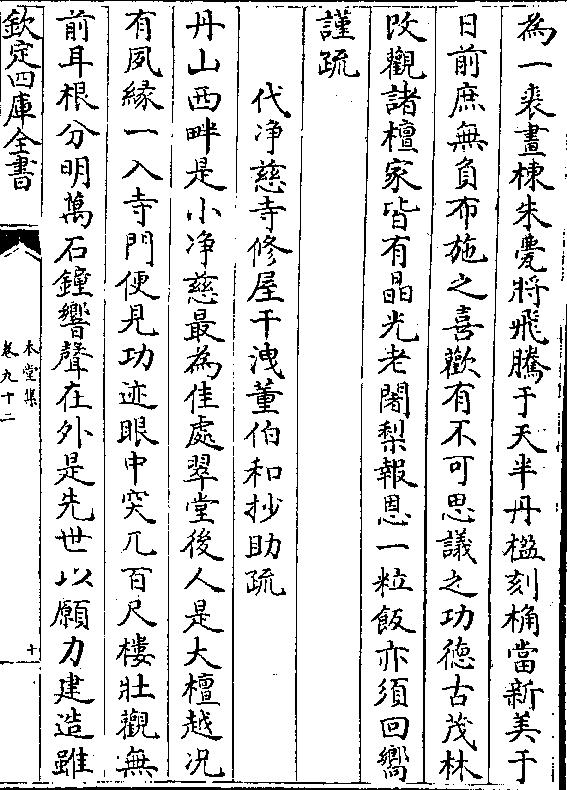 為一裘畫棟朱甍將飛騰于天半丹楹刻桷當新美于
日前庶無負布施之喜歡有不可思議之功德古茂林
改觀諸檀家皆有晶光老闍梨報恩一粒飯亦須回嚮
謹疏
代净慈寺修屋干洩董伯和抄助疏
丹山西畔是小净慈最為佳處翠堂後人是大檀越况
有夙緣一入寺門便見功迹眼中突兀百尺樓壯觀無
前耳根分明萬石鐘響聲在外是先世以願力建造雖
欽定四庫全書
本堂集
卷九十二
十